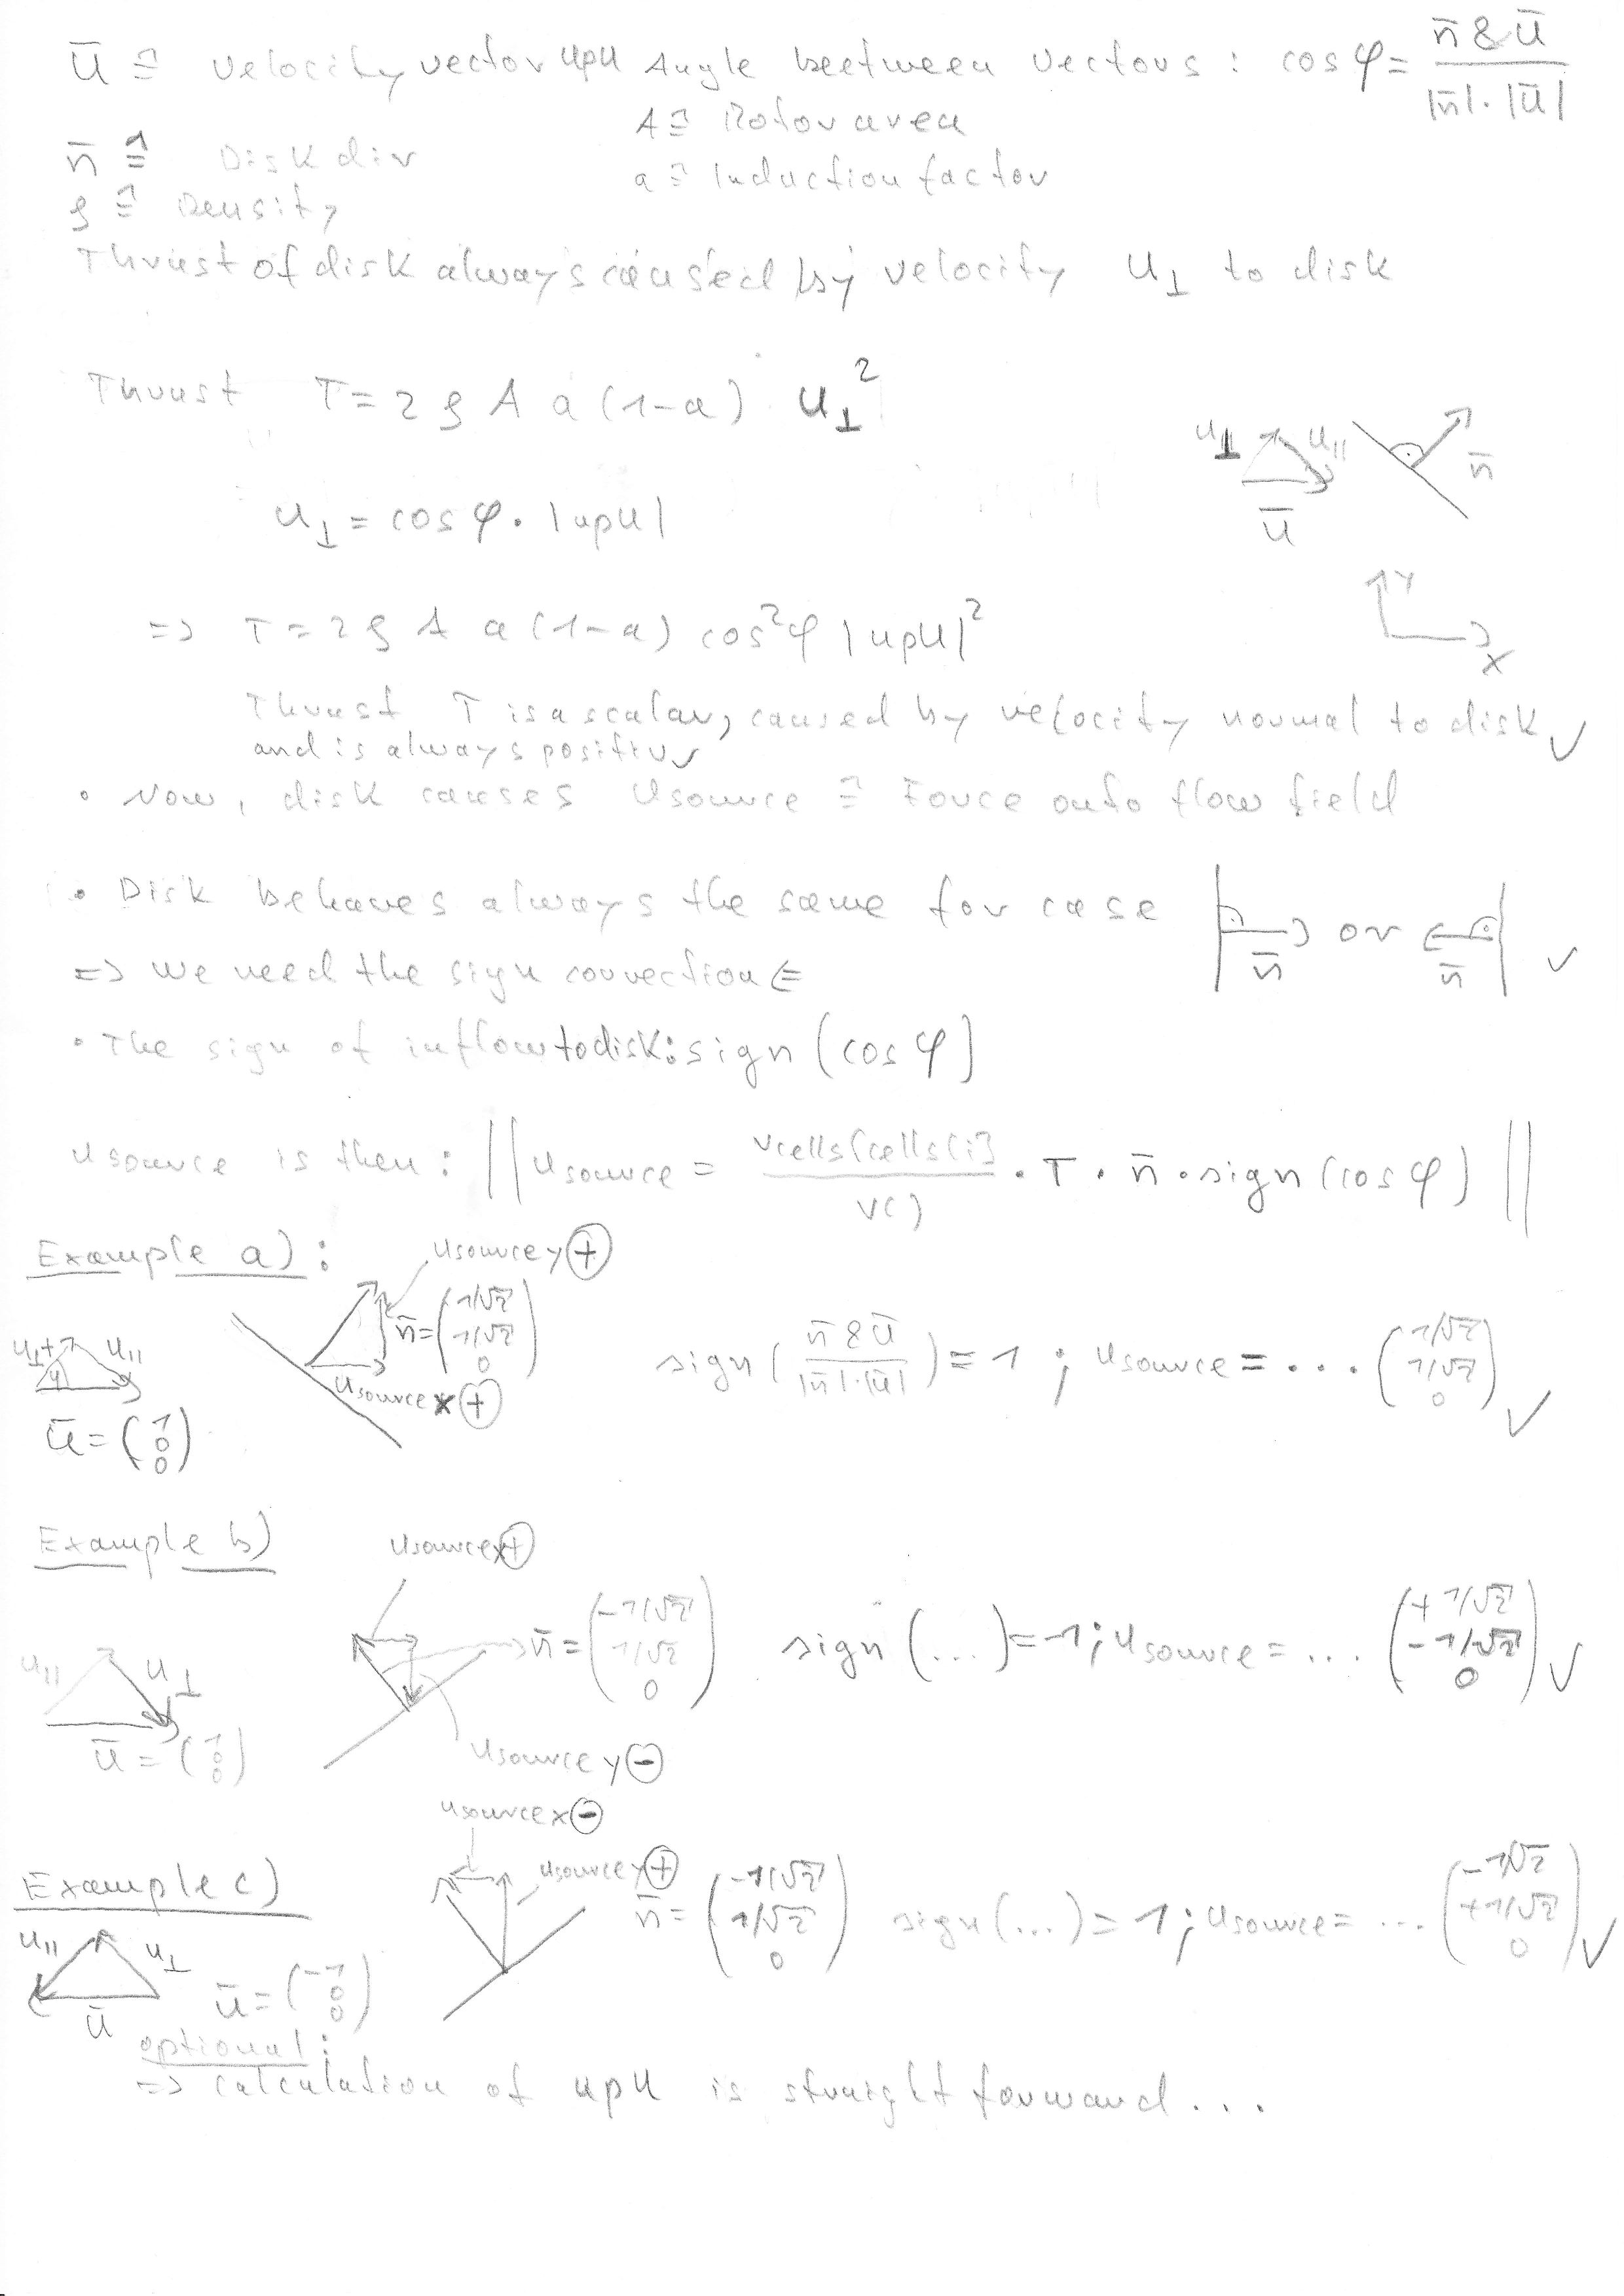 ū ≙ velocity vector upU Angle beetween vectors : cos φ = n̄ & ū / |n̄| · |ū|
A ≙ Rotor area
n̄ ≙ Disk dir
a ≙ Induction factor
ρ ≙ Density
Thrust of disk always caused by velocity u⊥ to disk
Thrust T = 2 ρ A a (1-a) u⊥²
u⊥ u∥ n̄
ū
u⊥ = cos φ · |upU|
Y
X
=> T = 2 ρ A a (1-a) cos²φ |upU|²
Thrust T is a scalar, caused by velocity normal to disk ✓
and is always positiv
• Now, disk causes Usource ≙ Force onto flow field
• Disk behaves always the same for case n̄ or n̄ ✓
=> We need the sign correction
• The sign of inflow to disk: sign (cos φ)
Usource is then : || Usource = Vcells[cells[i]] / V() · T · n̄ · sign (cos φ) ||
Example a) :
Usource y +
u⊥ + u∥
φ
n̄ = (1/√2 1/√2 0)
Usource x +
sign ( n̄ & ū / |n̄| · |ū| ) = 1 ; Usource = ... (1/√2 1/√2 0) ✓
ū = (1 0 0)
Example b)
Usource x +
u∥ u⊥
n̄ = (-1/√2 1/√2 0) sign (...) = -1 ; Usource = ... (+1/√2 -1/√2 0) ✓
ū = (1 0 0)
Usource y -
Usource x -
Example c)
Usource y +
n̄ = (-1/√2 1/√2 0) sign (...) = 1 ; Usource = ... (-1/√2 +1/√2 0) ✓
u∥ u⊥
ū
ū = (-1 0 0)
optional :
=> calculation of upU is straight forward ...